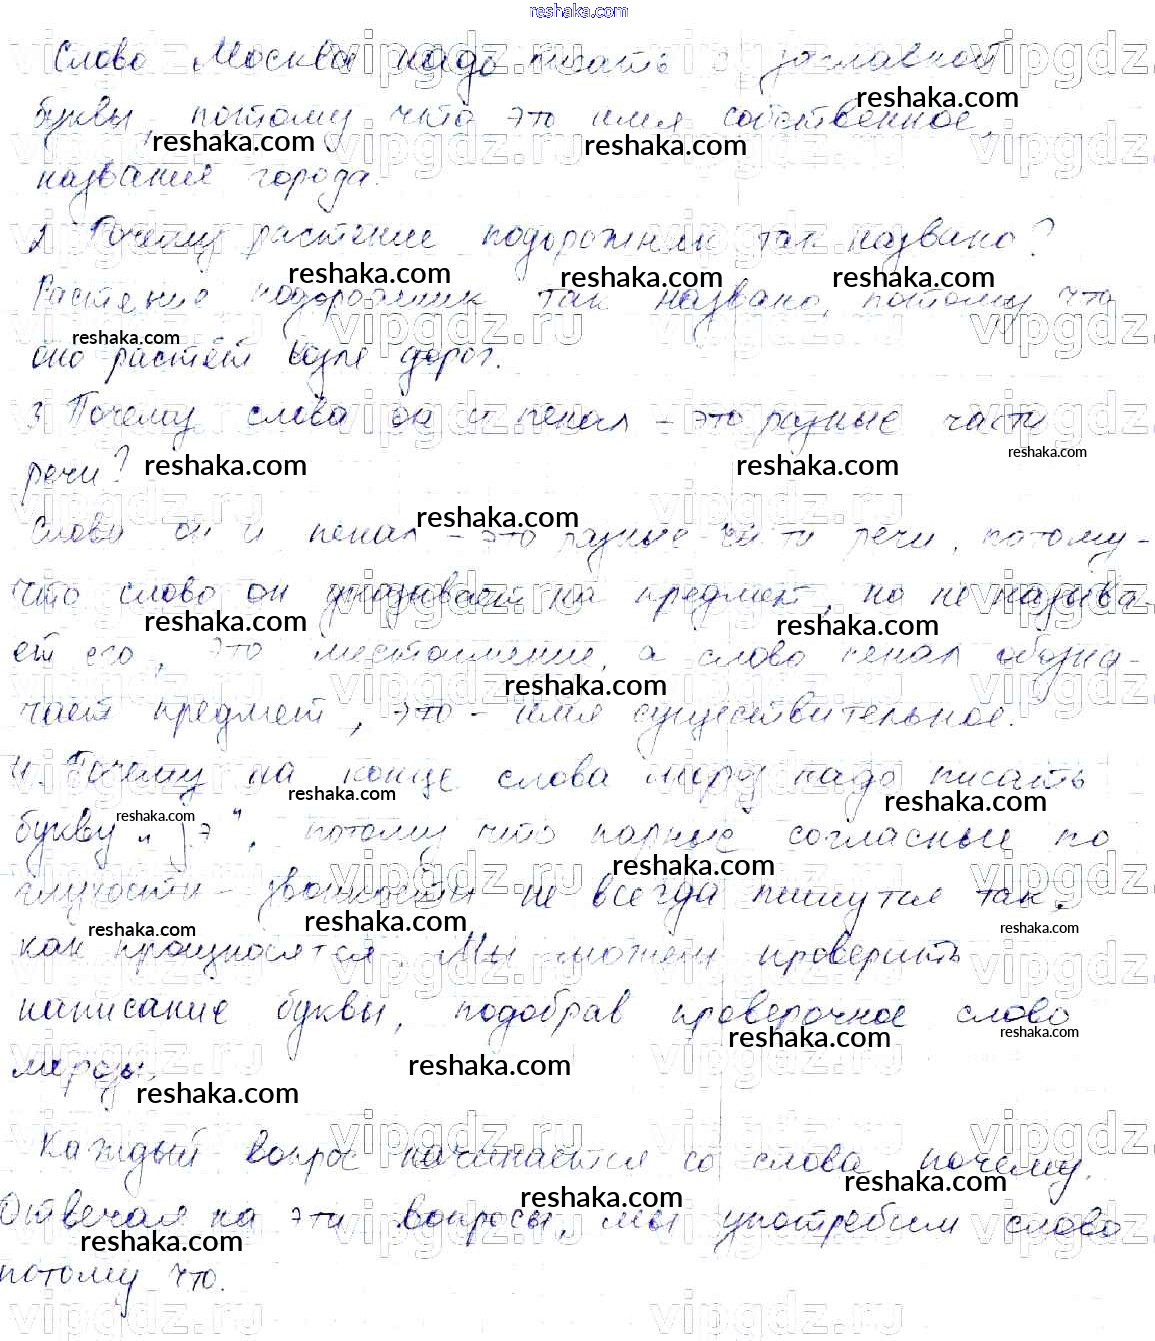 reshaka.com
Слово Москва надо писать с заглавной
буквы, потому что это имя собственное,
название города.
2. Почему растение подорожник так названо?
Растение подорожник так названо, потому что
оно растёт возле дорог.
3. Почему слова он и пенал - это разные части
речи?
Слова он и пенал - это разные части речи, потому-
что слово он указывает на предмет, но не называ-
ет его, это местоимение, а слово пенал обозна-
чает предмет, это - имя существительное.
4. Почему на конце слова мороз надо писать
букву "з", потому что парные согласные по
глухости - звонкости не всегда пишутся так,
как произносятся. Мы можем проверить
написание буквы, подобрав проверочное слово
морозы.
Каждый вопрос начинается со слова почему.
Отвечая на эти вопросы, мы употребим слово
потому что.